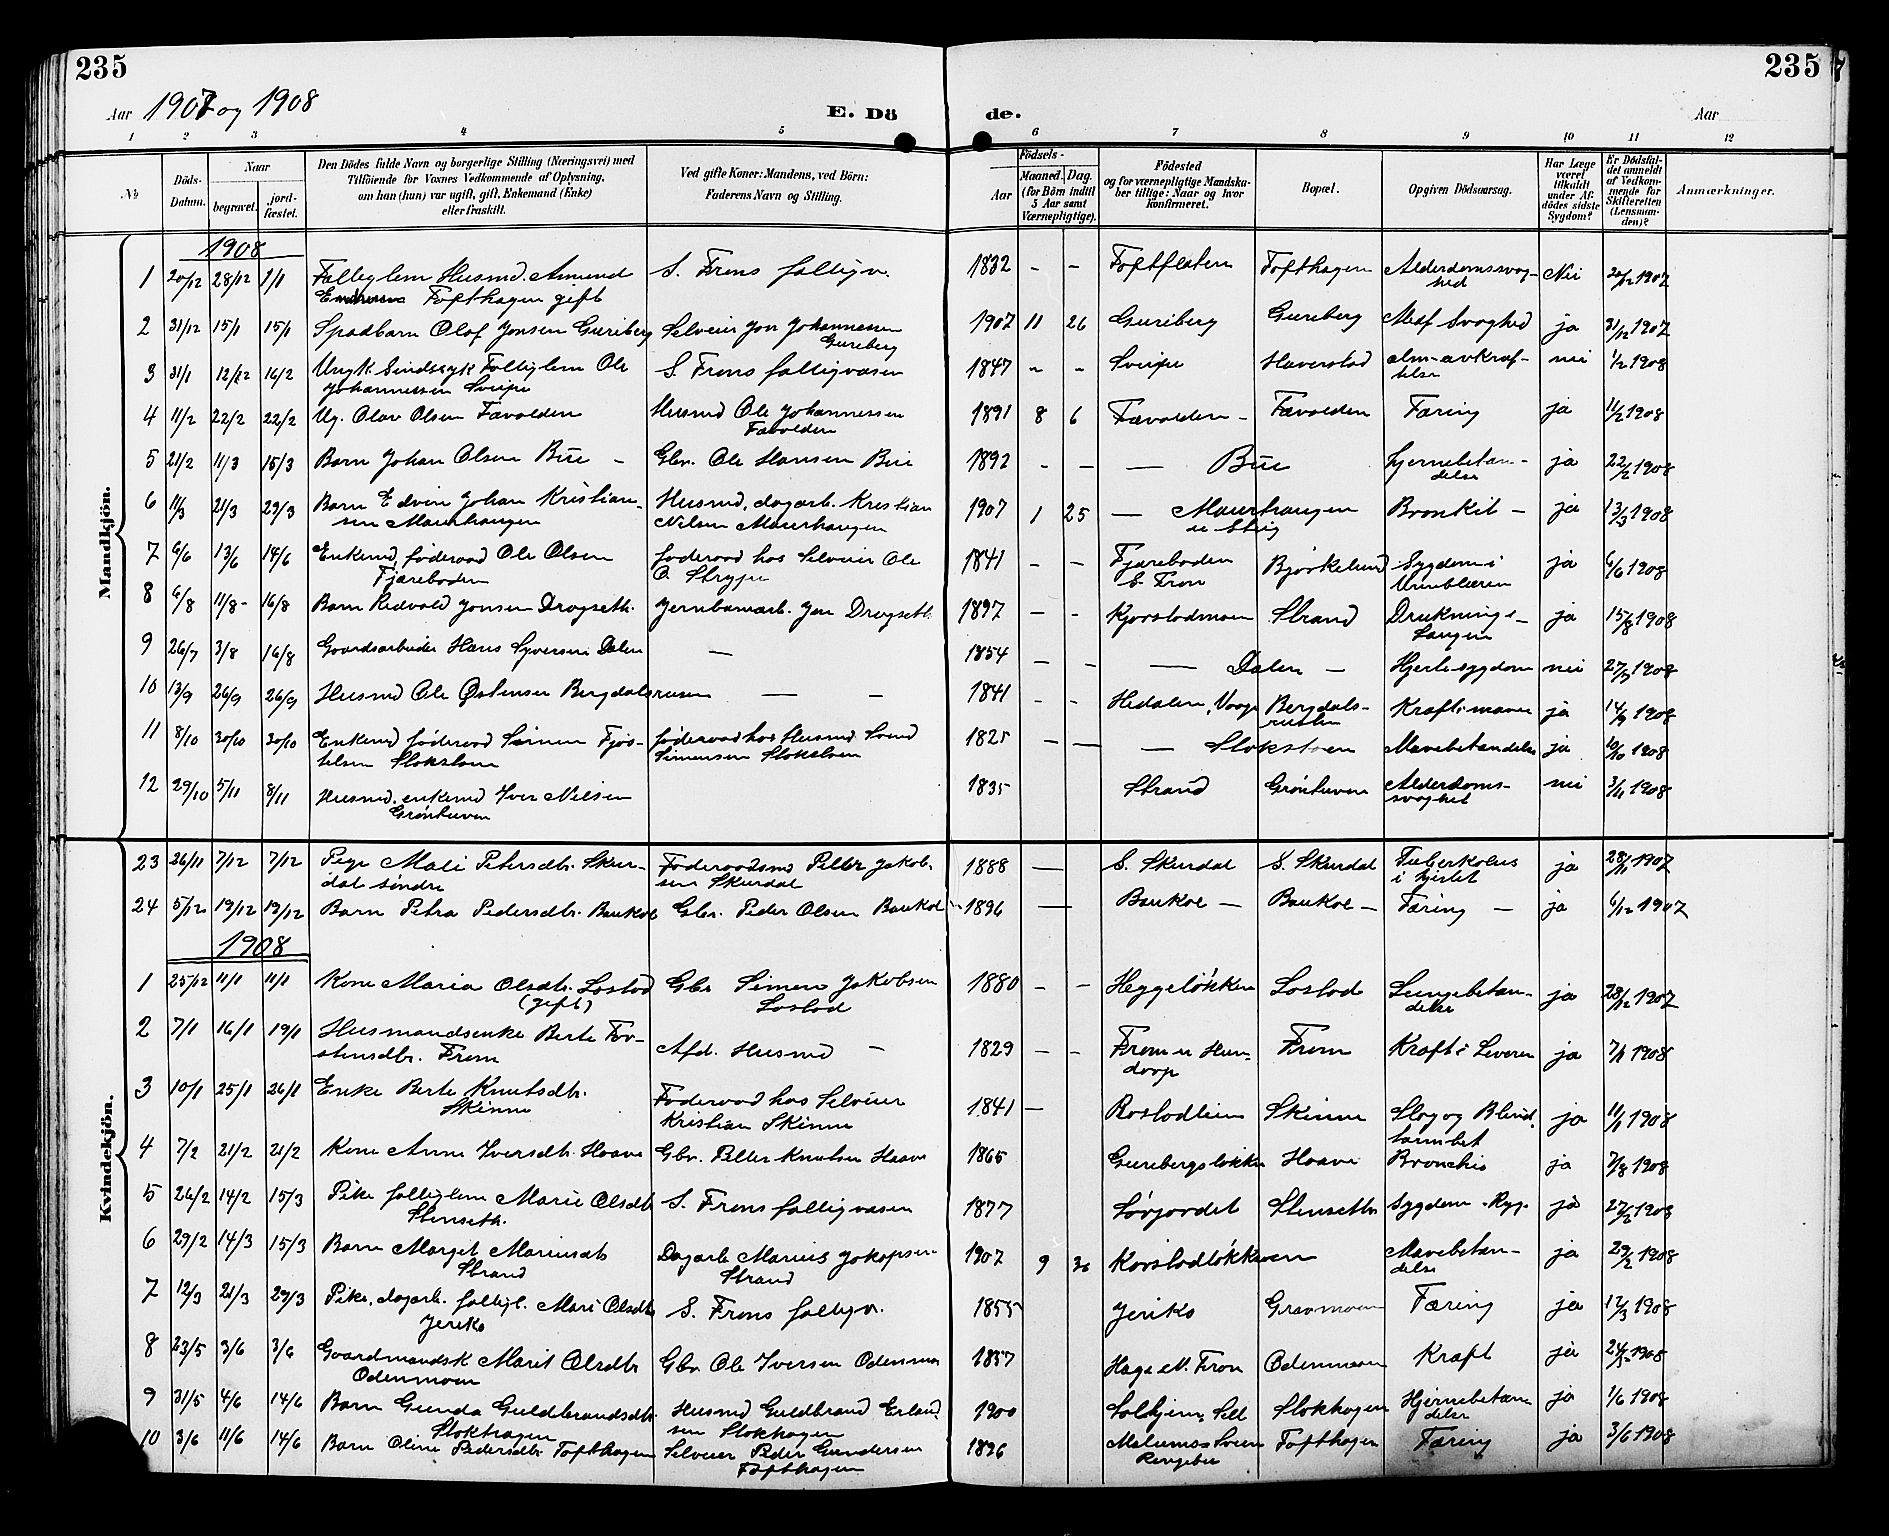 235
235
Aar 1907 og 1908
E. Dö
de.
Aar
1 2 3 4 5 6 7 8 9 10 11 12
No
Döds-
Datum.
Naar
begravet.
jord-
fæstet.
Den Dödes fulde Navn og borgerlige Stilling (Næringsvei) med
Tilföiende for Voxnes Vedkommende af Oplysning,
om han (hun) var ugift, gift, Enkemand (Enke)
eller fraskilt.
Ved gifte Koner: Mandens, ved Börn:
Faderens Navn og Stilling.
Födsels-
Aar
Maaned. Dag.
(for Börn indtil
5 Aar samt
Værnepligtige).
Födested
og for værnepligtige Mandska-
ber tillige: Naar og hvor
konfirmeret.
Bopæl.
Opgiven Dödsaarsag.
Har Læge
været
tilkaldt
under Af-
dödes sidste
Sygdom?
Er Dödsfal-
det anmeldt
af Vedkom-
mende for
Skifteretten
(Lensman-
den)?
Anmærkninger.
Mandkjön.
1908
1 20/12 28/12 1/1 Fattiglem Husmd. Amund S. Frons fattigv. 1832 - - Toftflaten Tofthagen Alderdomssvag- Nei 20/12 1907
Tofthagen gift hed
2 31/12 15/1 15/1 Spædbarn Olaf Jonsen Gureberg Selveier Jon Johannessen 1907 11 26 Gureberg Gureberg Medf Svaghed ja 31/12 1907
Gureberg
3 31/1 12/2 16/2 Ungk Sindssyk Fattiglem Ole S. Frons fattigvæsen 1847 - - Sveipe Haverstad alm-avkræf- nei 1/2 1908
Johannessen Sveipe telse
4 11/2 22/2 22/2 Ug. Olav Olsen Tævolden Husmd Ole Johannessen 1891 8 6 Tævolden - Tævolden Tæring ja 11/2 1908
Tævolden
5 21/2 11/3 15/3 Barn Johan Olsen Bue - Gbr. Ole Hansen Bue 1892 - - — Bue Hjernebetæn- ja 22/2 1908
delse
6 11/3 21/3 29/3 Barn Edvin Johan Kristian- Husmd, dagarb. Kristian 1907 1 25 — Maurhaugen Bronkit - ja 13/3 1908
sen Maurhaugen Nilsen Maurhaugen
7 6/6 13/6 14/6 Enkemd, føderaad Ole Olsen føderaad hos Selveier Ole 1841 - - Fjæreboden Bjørkelund Sygdom i ja 6/6 1908
Fjæreboden O. Strype S. Fron Urinblæren
8 6/8 11/8 - 16/8 Barn Redvald Jonsen Dragseth. Jernbanearb. Jon Dragseth 1897 - - Kjorstadmoen Strand Drukning i ja 15/8 1908
Laagen
9 26/7 3/8 16/8 Gaardsarbeider Hans Syversen Dalen — 1854 - - — Dalen - Hjertesygdom nei 27/7 1908
10 13/9 26/9 26/9 Husmd Ole Østensen Bergdalsruen — - 1841 - - Hedalen, Vaage Bergdals- Kræft i maven ja 14/9 1908
11 8/10 30/10 30/10 Enkemd føderaad Simen Fjøs- føderaad hos Husmd. Svend 1825 - — — Slokstoen Mavebetændelse ja 10/10 1908
telsen Slokstoen Simensen Slokstoen
12 29/10 5/11 8/11 Husmd. enkemd Iver Nilsen 1835 Strand Grønhuven Alderdoms- nei 3/11 1908
Grønhuven svaghet
Kvindekjön.
23 26/11 7/12 7/12 Pige Mali Petersdtr. Skur- Føderaadsmd Petter Jakob- 1888 — S. Skurdal S. Skurdal Tuberkolus ja 28/11 1907
dal søndre sen Skurdal
24 5/12 19/12 19/12 Barn Petra Pedersdtr. Baukol Gbr. Peder Olsen Baukol 1896 — Baukol - Baukol - Tæring - ja 6/12 1907
1908
1 25/12 11/1 11/1 Kone Maria Olsdtr. Lostad Gbr Simen Jakobsen 1880 - - Heggeløkken Lostad Lungebetæn- ja 28/12 1907
(gift) Lostad delse
2 7/1 16/1 19/1 Husmandsenke Berte Tor- Afd. Husmd - 1829 - - From u Hun- From Kræft i Leveren ja 7/1 1908
stensdtr. From dorp
3 10/1 25/1 26/1 Enke Berte Knutsdtr. Føderaad hos Selveier 1841 - Rostadlien Skinne Slag og Blind- ja 11/1 1908
Skinne Kristian Skinne
4 7/2 21/2 21/2 Kone Anne Iversdtr. Haave Gbr. Petter Knutsen Haave 1865 Gurebergsløkken Haave Bronchis ja 7/8 1908
5 26/2 14/2 15/3 Pike fattiglem Marie Olsdtr S. Frons fattigvæsen 1877 Sørjordet Stenseth Sygdom - Ryg- ja 27/2 1908
Stenseth.
6 29/2 14/3 15/3 Barn Margit Mariusdtr Dagarb Marius Jakopsen 1907 9 30 Korstadløkkoen Mavebetæn- ja 29/2 1908
Strand Strand delse
7 12/3 21/3 29/3 Pike, dagarb. fattigl. Mari Olsdtr S. Frons fattigv. 1855 Jeriko Gravmoen Tæring ja 12/3 1908
Jeriko
8 23/5 3/6 3/6 Gaardmandsk Marit Olsdtr Gbr. Ole Iversen Odenmoen 1857 Hage N. Fron Odenmoen Kræft ja 24/5 1908
Odenmoen
9 31/5 4/6 14/6 Barn Gunda Guldbrandsdtr. Husmd Guldbrand Erland- 1900 Solhjem, Sell Slokhagen Hjernebetæn- ja 1/6 1908
Slokhagen sen Slokhagen delse
10 3/6 11/6 14/6 Barn Oline Pedersdtr Tofthagen Selveier Peder Gundersen 1896 Tofthagen Tæring ja 3/6 1908
Tofthagen Ringebu